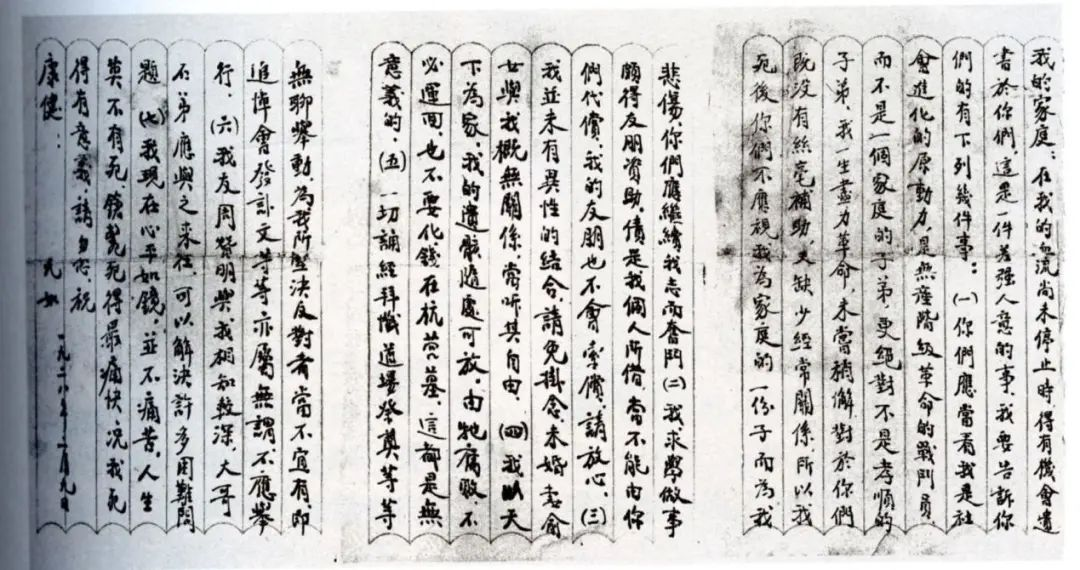 我的家庭：在我的血流尚未停止時得有機會遺
書於你們，這是一件差强人意的事，我要告訴你
們的有下列幾件事：（一）你們應當看我是社
會進化的原動力，是無產階級革命的戰鬥員，
而不是一個家庭的子弟，更絕對不是孝順的
子弟，我一生盡力革命，未嘗稍懈，對於你們
既没有絲毫補助，又缺少經常關係，所以我
死後你們不應視我為家庭的一份子而為我
悲傷，你們應繼續我志而奮鬥（二）我求學做事
頗得友朋資助，債是我個人所借，當不能由你
們代償，我的友朋也不會索償，請放心，（三）
我並未有異性的結合，請免掛念，未婚妻俞
女與我概無關係，當听其自由，（四）我以天
下為家，我的遺骸隨處可放，由牠腐敗，不
必運囬，也不要化錢在杭营墓，這都是無
意義的，（五）一切誦經拜懺道場祭奠等等
無聊舉動，為我所堅决反對者當不宜有，即
追悼會發訃文等等亦屬無謂，不應舉
行，（六）我友周贊明與我相知較深，大哥
石弟應與之来往，可以解决許多困難問
題（七）我現在心平如鏡，並不痛苦，人生
莫不有死，鎗斃死得最痛快，况我死
得有意義，請勿念，祝
康健：
一九二八年十一月九日